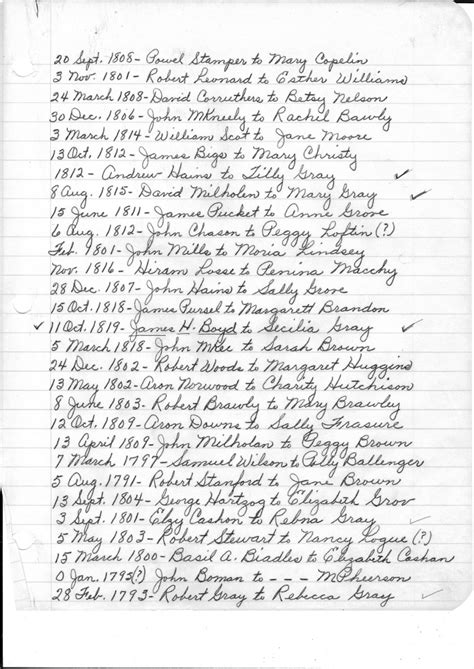 20 Sept. 1808- Powel Stamper to Mary Copelin
3 Nov. 1801- Robert Leonard to Esther Williams
24 March 1808- David Corruthers to Betsy Nelson
30 Dec. 1806- John McKneely to Rachil Bawly
3 March 1814- William Scot to Jane Moore
13 Oct. 1812- James Bigs to Mary Christy
1812- Andrew Hains to Tilly Gray ✓
8 Aug. 1815- David Milholen to Mary Gray ✓
15 June 1811- James Pucket to Anne Grove
6 Aug. 1812- John Chason to Peggy Loftin (?)
Feb. 1801- John Mills to Moria Lindsey
Nov. 1816- Hiram Losse to Penina Macchy
28 Dec. 1807- John Hains to Sally Grove
15 Oct. 1818- James Pursel to Margarett Brandon
✓ 11 Oct. 1819- James H. Boyd to Secilia Gray ✓
5 March 1818- John McKee to Sarah Brown
24 Dec. 1802- Robert Woods to Margaret Huggins
13 May 1802- Aron Norwood to Charity Hutchison
8 June 1803- Robert Brawly to Mary Brawley
12 Oct. 1809- Aron Downs to Sally Frasure
13 April 1809- John Milholan to Peggy Brown
7 March 1797- Samuel Wilson to Polly Ballenger
5 Aug. 1791- Robert Stanford to Jane Brown
13 Sept. 1804- George Hartzog to Elizabeth Grov
3 Sept. 1801- Elzy Cashon to Rebna Gray ✓
5 May 1803- Robert Stewart to Nancy Logue (?)
15 March 1800- Basil A. Biadles to Elizabeth Cashan
0 Jan. 1793(?) John Boman to - - - McPheerson
28 Feb. 1793- Robert Gray to Rebecca Gray ✓